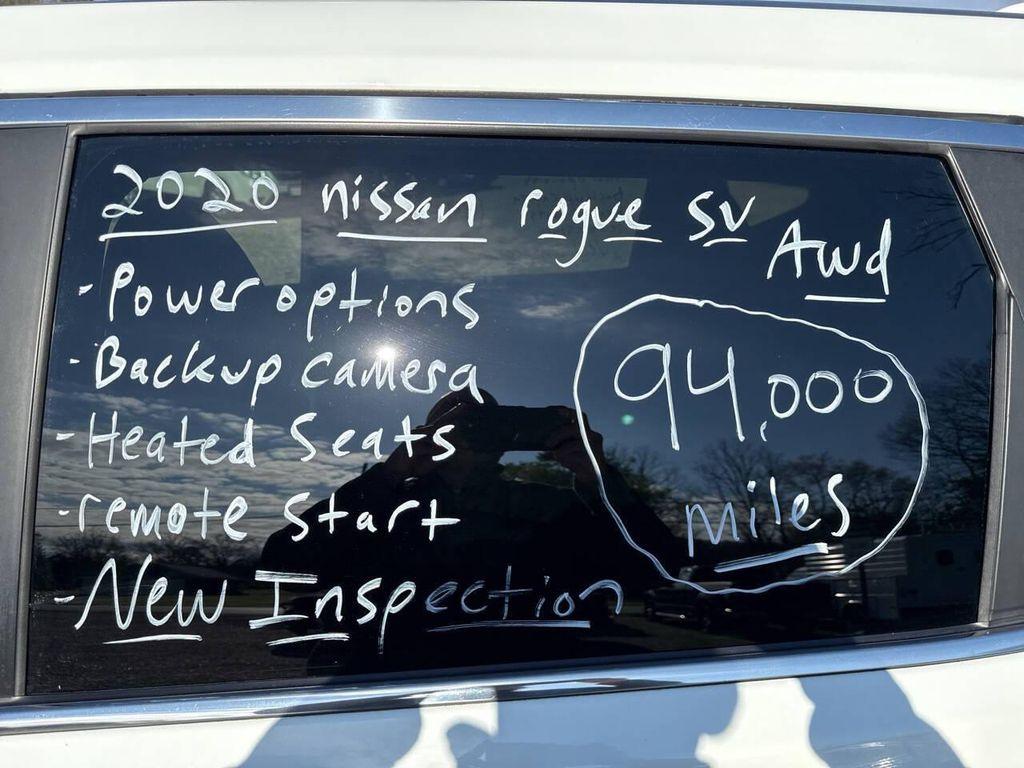 2020 nissan rogue SV Awd
- Power options
- Backup camera
- Heated Seats
- remote Start
- New Inspection
94,000
miles